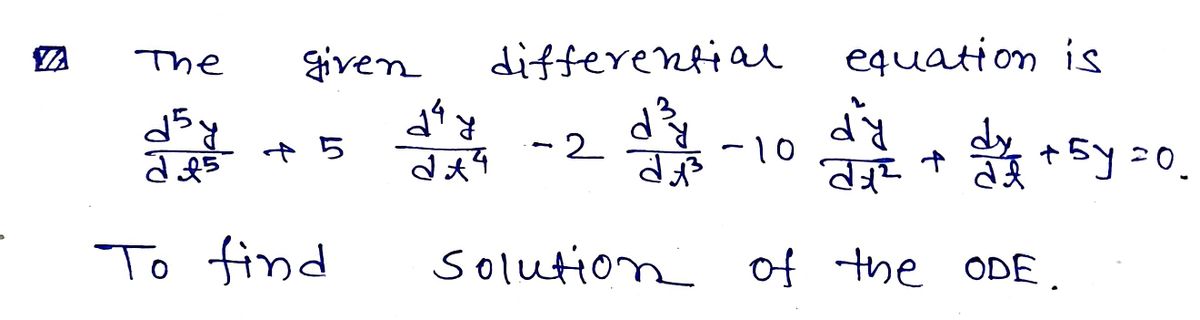 The given differential equation is
d⁵y/dt⁵ + 5 d⁴y/dt⁴ - 2 d³y/dt³ - 10 d²y/dt² + dy/dt + 5y = 0.
To find solution of the ODE.